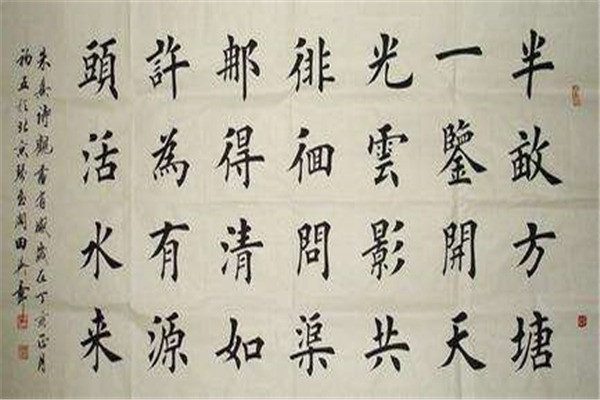 半畝方塘
一鑒開天
光雲影共
徘徊問渠
那得清如
許為有源
頭活水来
朱熹诗觀書有感歲在丁亥正月
初五於北京田書